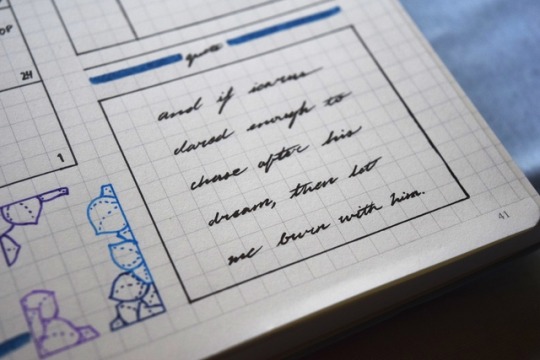 OP
24
1
quote
and if icarus
dared enough to
chase after his
dream, then let
me burn with him.
41